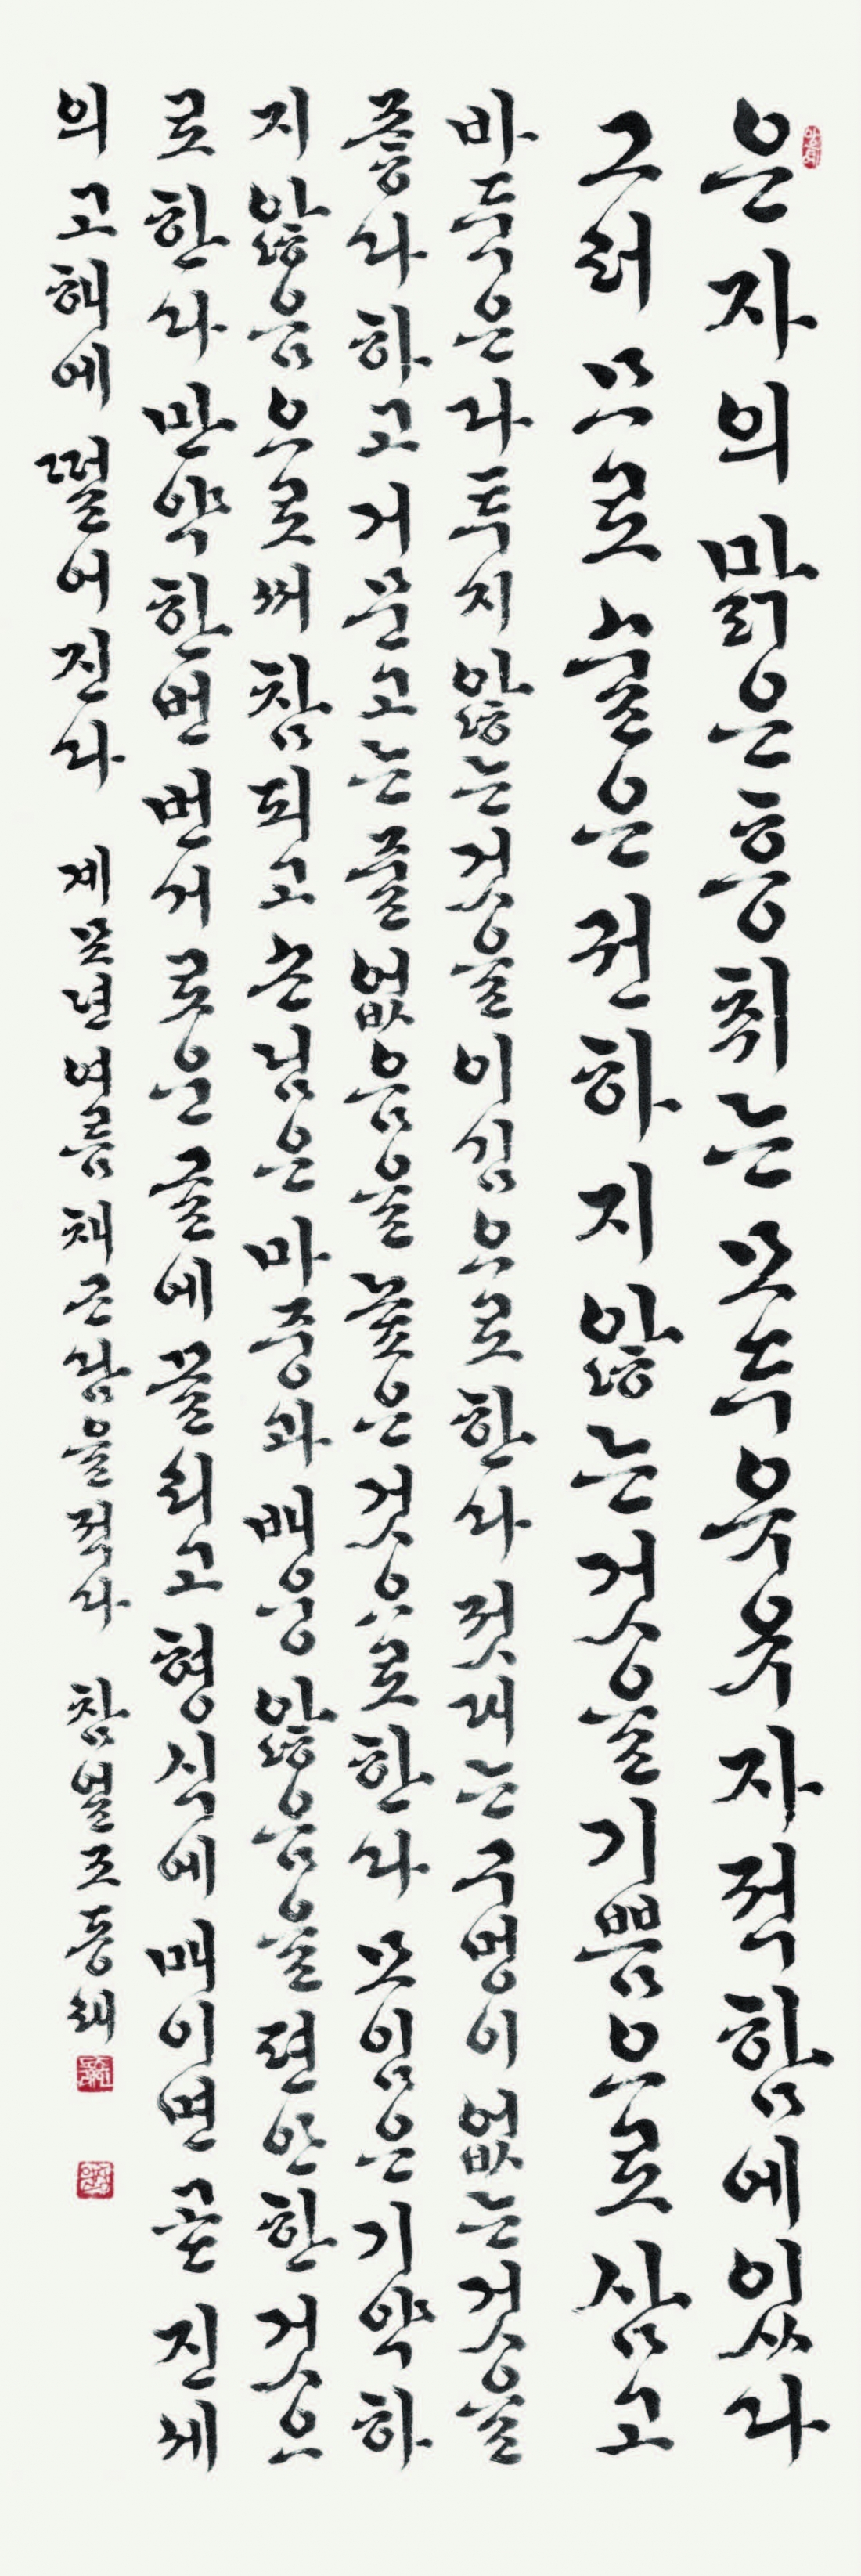 은자의맑은흥취는모두유유자적함에있다
그러므로술은권하지않는것을기쁨으로삼고
바둑은다투지않는것을이김으로한다젓대는구멍이없는것을
좋다하고거문고는줄없음을높은것으로한다모임은기약하
지않음으로써참되고손님은마중과배웅않음을편안한것으
로한다만약한번번거로운글에끌리고형식에매이면곧진세
의고해에떨어진다 계묘년여름채근담을적다